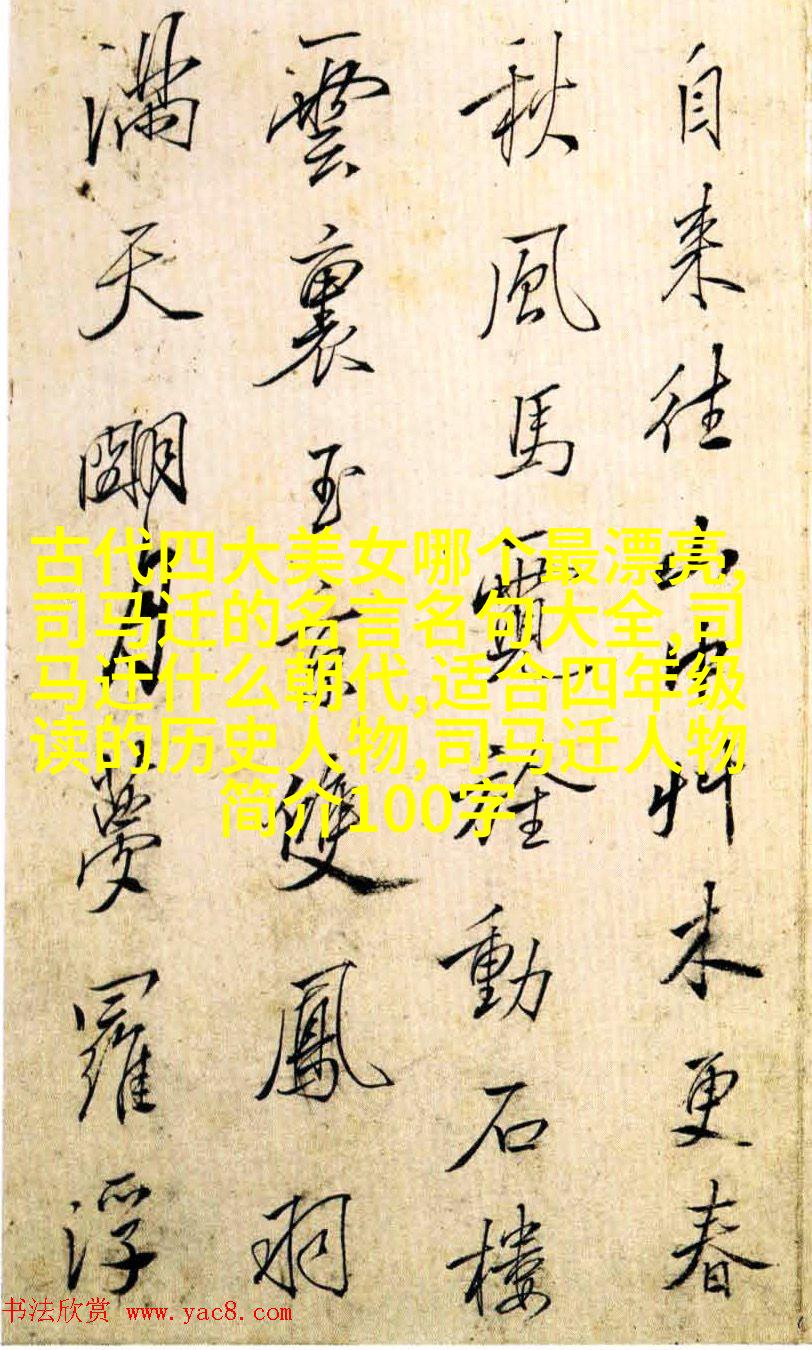 自来往山中艸木更春
秋風馬霓旌動石樓
雲裏玉京雙鳳羽
滿天明月夢羅浮
古代四大美女哪个最漂亮,
司马迁的名言名句大全,司
马迁什么朝代,适合四年级
读的历史人物,司马迁人物
简介100字
书法欣赏 www.yac8.com